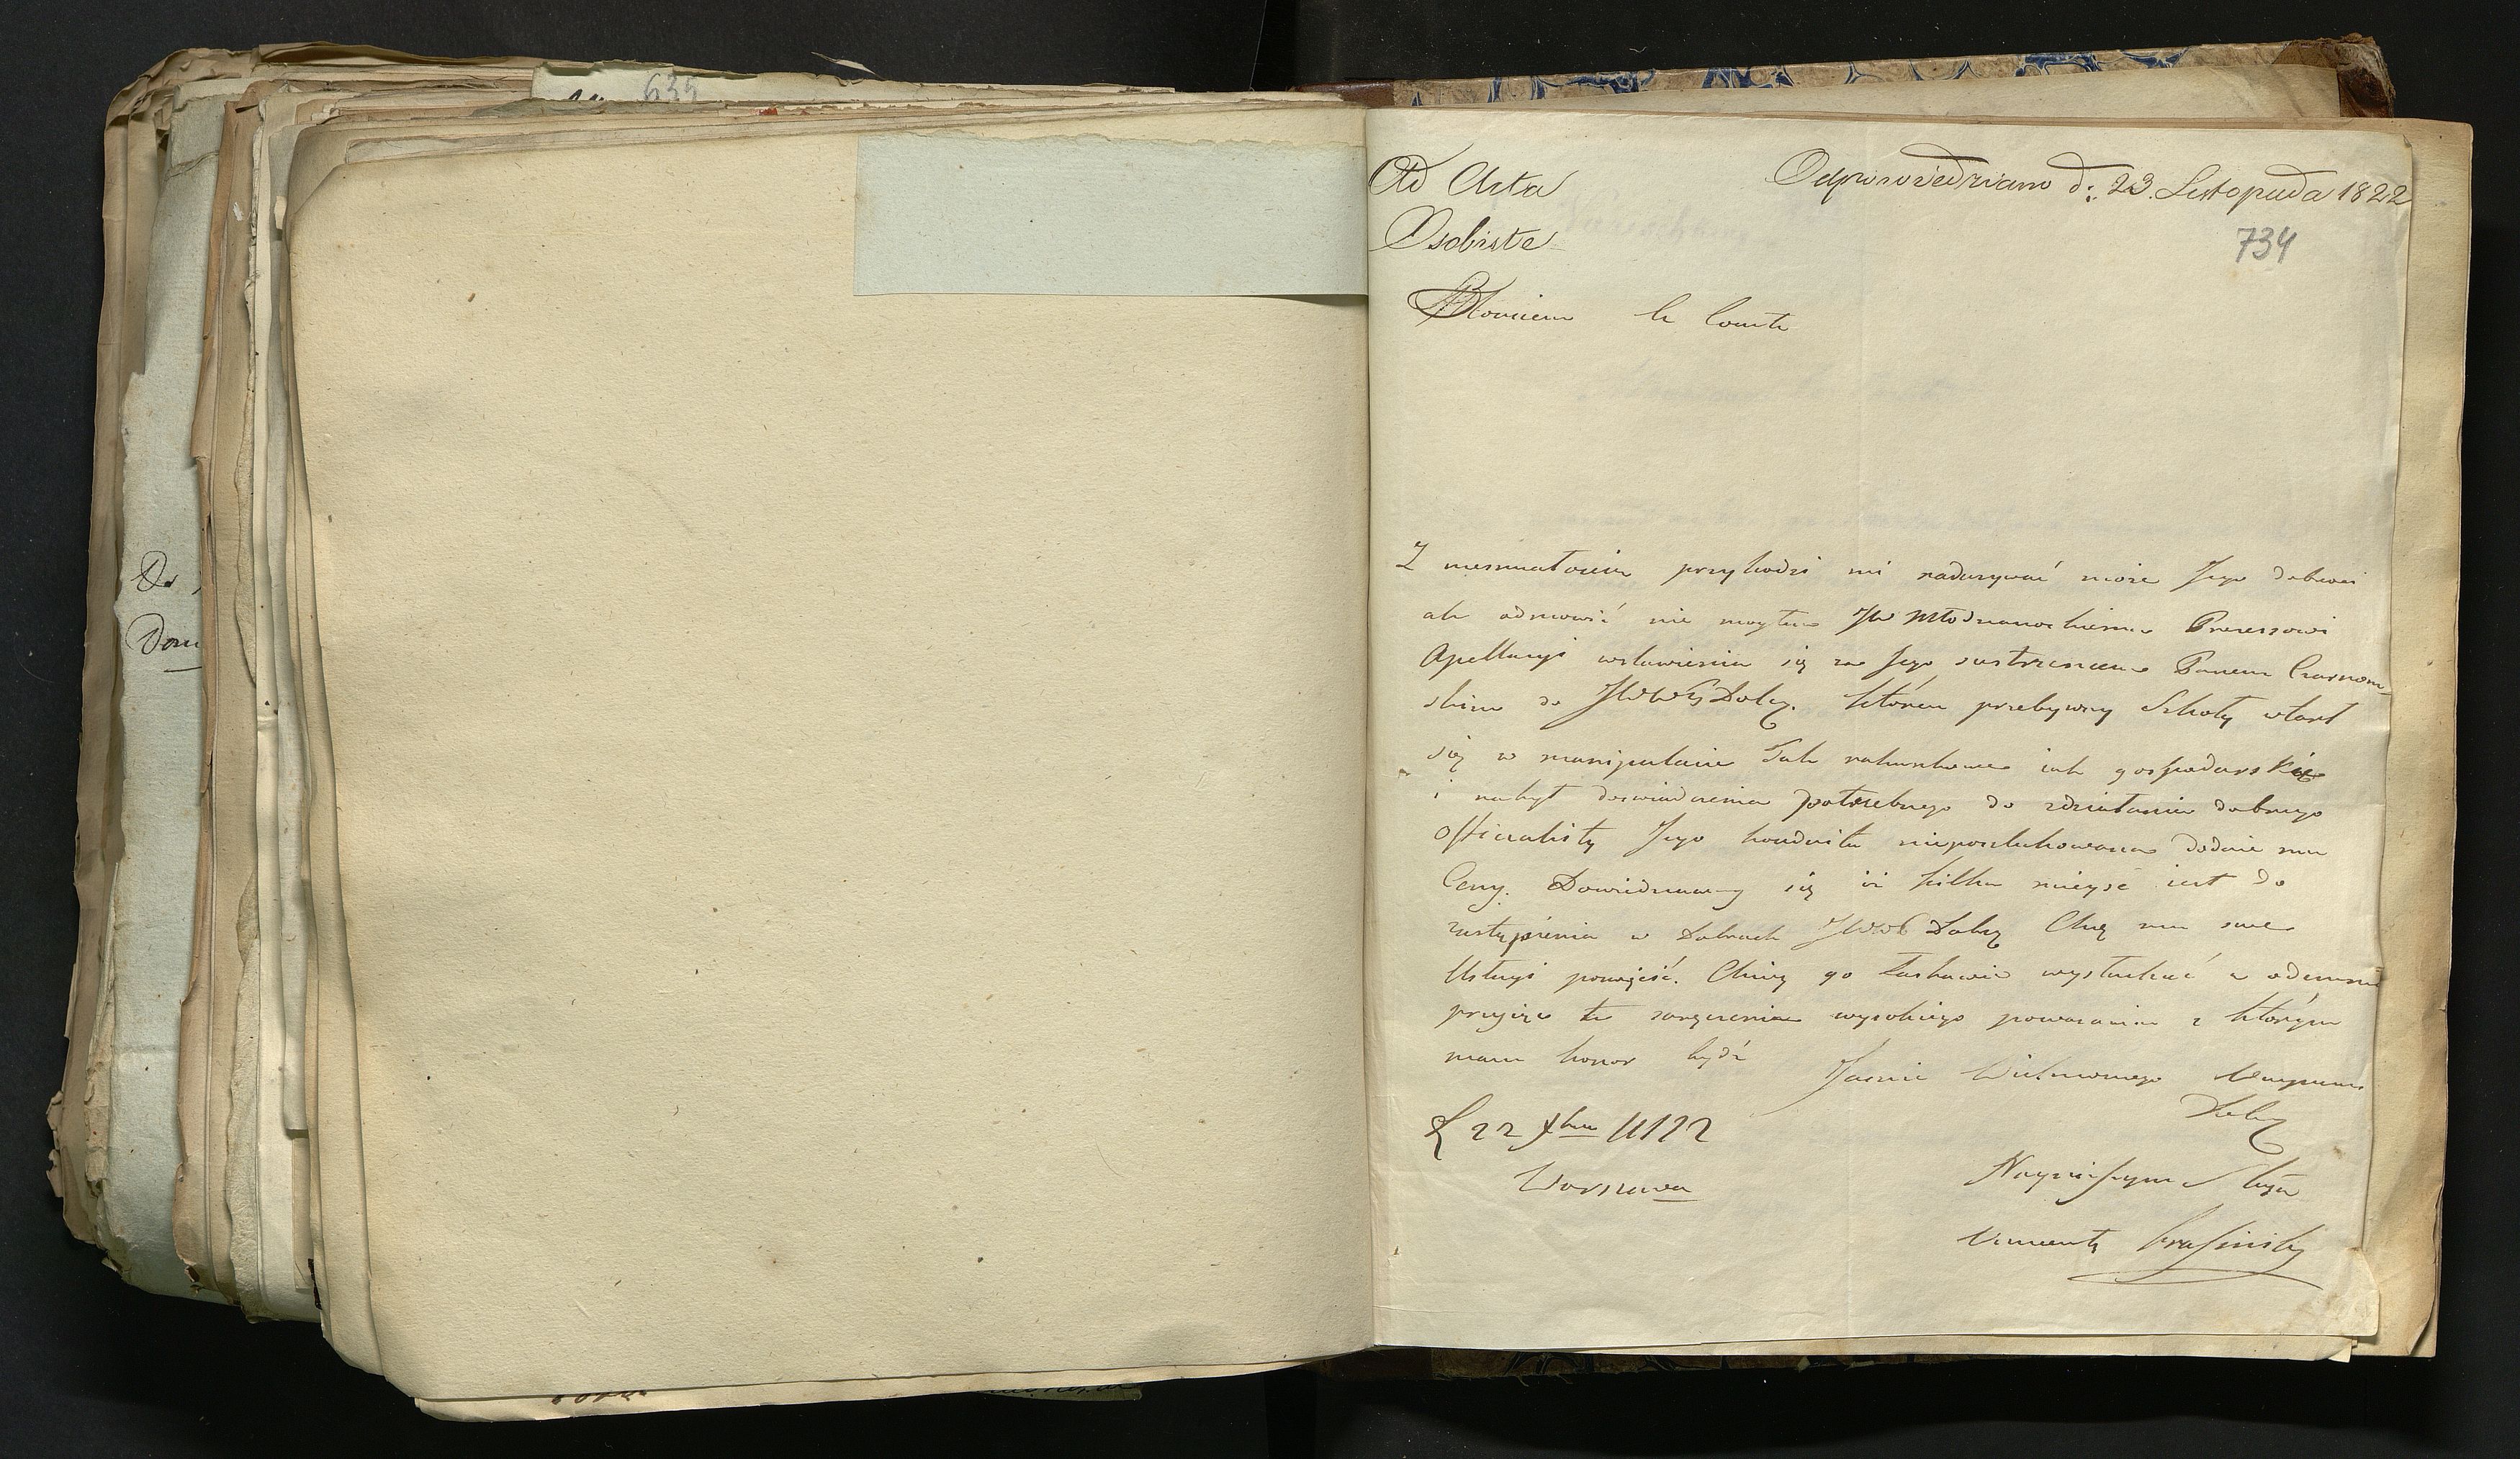 635
Do
Dom
Ad Acta
Osobiste
Odpowiedziano d: 23. Listopada 1822
734
Monsieur le Comte
Z nieśmiałością przychodzi mi nadużywać może Jego dobroci
ale odmówić nie mogłem JW Młodzianowskiemu Prezesowi
Apellacyi wstawienia się za Jego siostrzeńcem Panem Czarnom-
skim do JWWG Dobrz. który przebywszy Szkoły wtarł
się w manipulacie Tak rachunkowe iak gospodarskie
i nabył doswiadczenia potrzebnego do zdziałania dobrego
officialisty Jego konduita nieposzlakowana dodaie mu
Ceny. Dowiedziawszy się iż kilka mieysc iest do
zastąpienia w Dobrach JWWG Dobrz Chcę mu swe
Usługi poswięcić. Chciey go łaskawie wysłuchać a odemnie
przyjąć te zaręczenia wysokiego poważania z którym
mam honor bydź
Jasnie Wielmożnego
Dobrz
22 1822
Warszawa
Nayniższym Sługą
Vincenty Krasiński